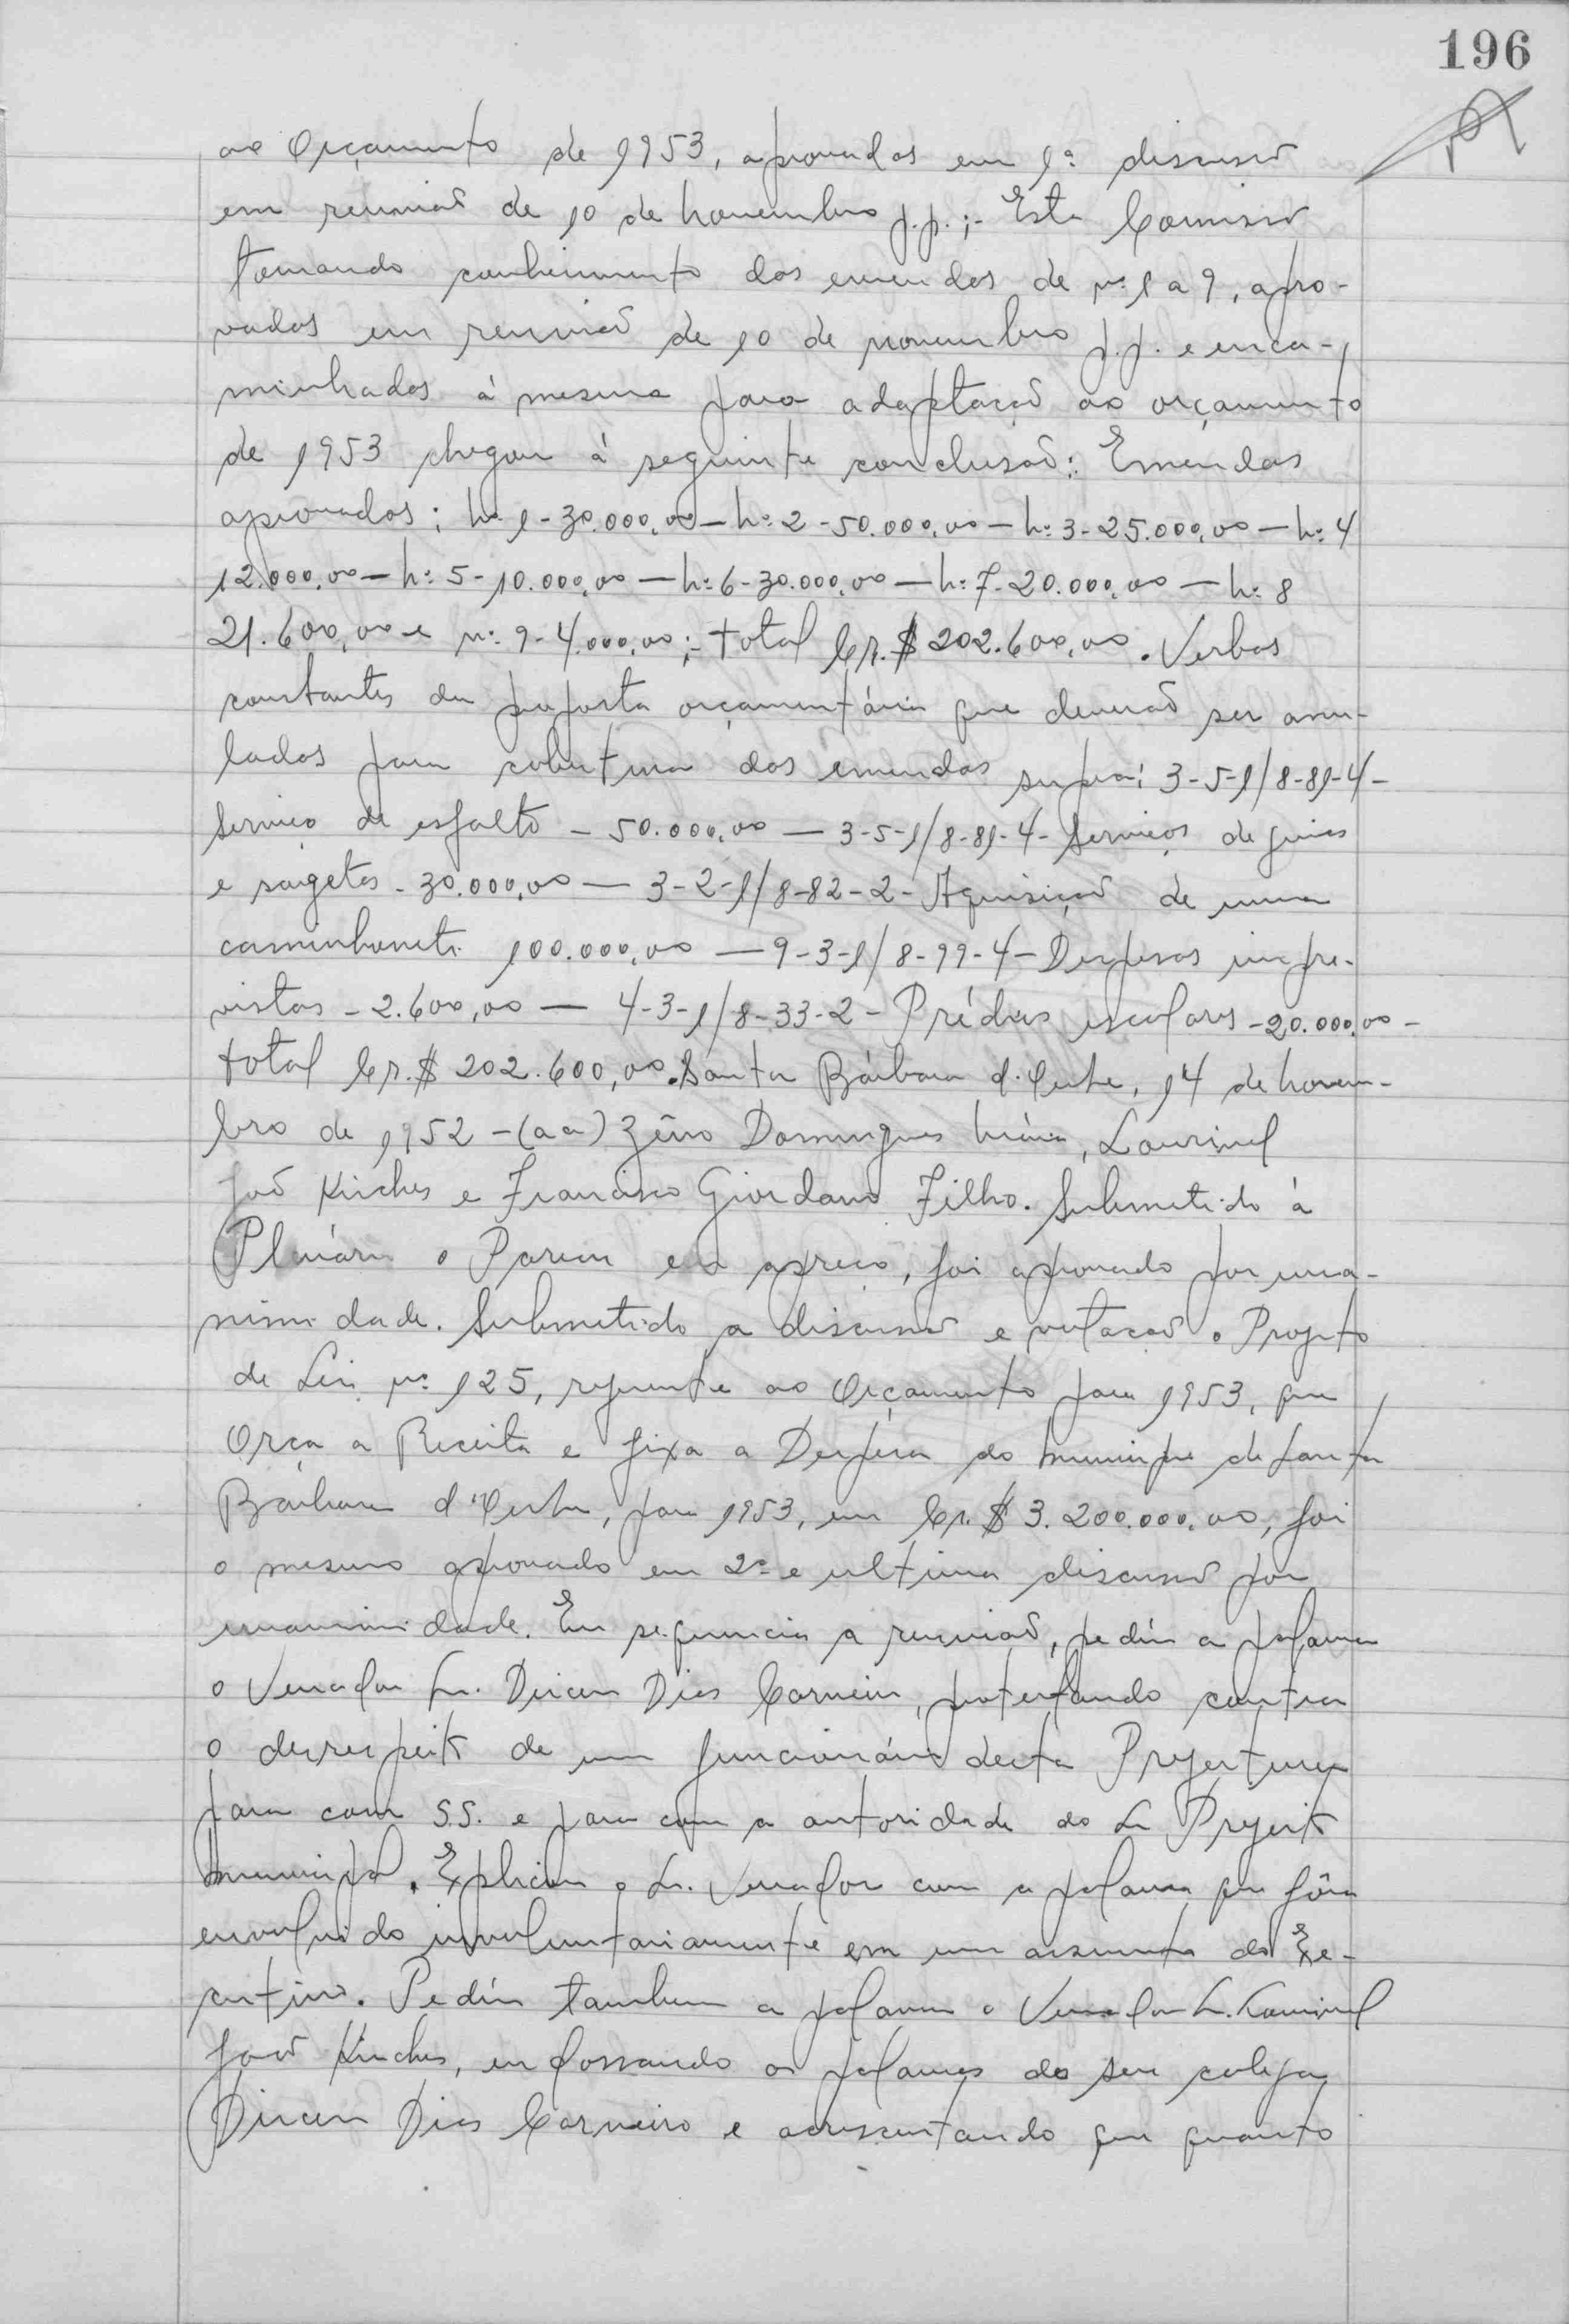 196
ao Orçamento de 1953, aprovadas em 1ª discussão
em reunião de 10 de Novembro p.p.;- Esta Comissão
tomando conhecimento das emendas de nº 1 a 9, apro-
vadas em reunião de 10 de novembro p.p. e enca-
minhadas á mesma para adaptação ao orçamento
de 1953 chegou á seguinte conclusão: Emendas
aprovadas: Nº 1-30.000,00 — Nº 2-50.000,00 — Nº 3-25.000,00 — Nº 4
12.000,00 — Nº 5-10.000,00 — Nº 6-30.000,00 — Nº 7-20.000,00 — Nº 8
21.600,00 e nº 9-4.000,00;- total Cr.$ 202.600,00. Verbas
constantes da proposta orçamentária que deverão ser anu-
ladas para cobertura das emendas supra: 3-5-1/8-81-4-
Serviço de asfalto - 50.000,00 — 3-5-1/8-81-4- Serviços de guias
e sargetas - 30.000,00 — 3-2-1/8-82-2- Aquisição de uma
caminhonete 100.000,00 — 9-3-1/8-99-4- Despesas impre-
vistas - 2.600,00 — 4-3-1/8-33-2- Prédios escolares - 20.000,00 -
total Cr.$ 202.600,00. Santa Bárbara d'Oeste, 14 de Novem-
bro de 1952 - (aa) Zêno Domingues Maia, Lourival
João Kirches e Francisco Giordano Filho. Submetido á
Plenário o Parecer em apreço, foi aprovado por una-
nimidade. Submetido a discussão e votação o Projeto
de Lei nº 125, referente ao Orçamento para 1953, que
Orça a Receita e fixa a Despesa do Municipio de Santa
Bárbara d'Oeste, para 1953, em Cr.$ 3.200.000,00, foi
o mesmo aprovado em 2ª e ultima discussão por
unanimidade. Em sequencia a reunião, pediu a palavra
o Vereador Sr. Dirceu Dias Carneiro, protestando contra
o desrespeito de um funcionário desta Prefeitura
para com S.S. e para com a autoridade do Sr Prefeito
Municipal. Explicou o Sr. Vereador com a palavra que fôra
envolvido involuntariamente em um assunto do Exe-
cutivo. Pediu tambem a palavra o Vereador Sr. Lourival
João Kirches, endossando as palavras do seu colega
Dirceu Dias Carneiro e acrescentando que quanto